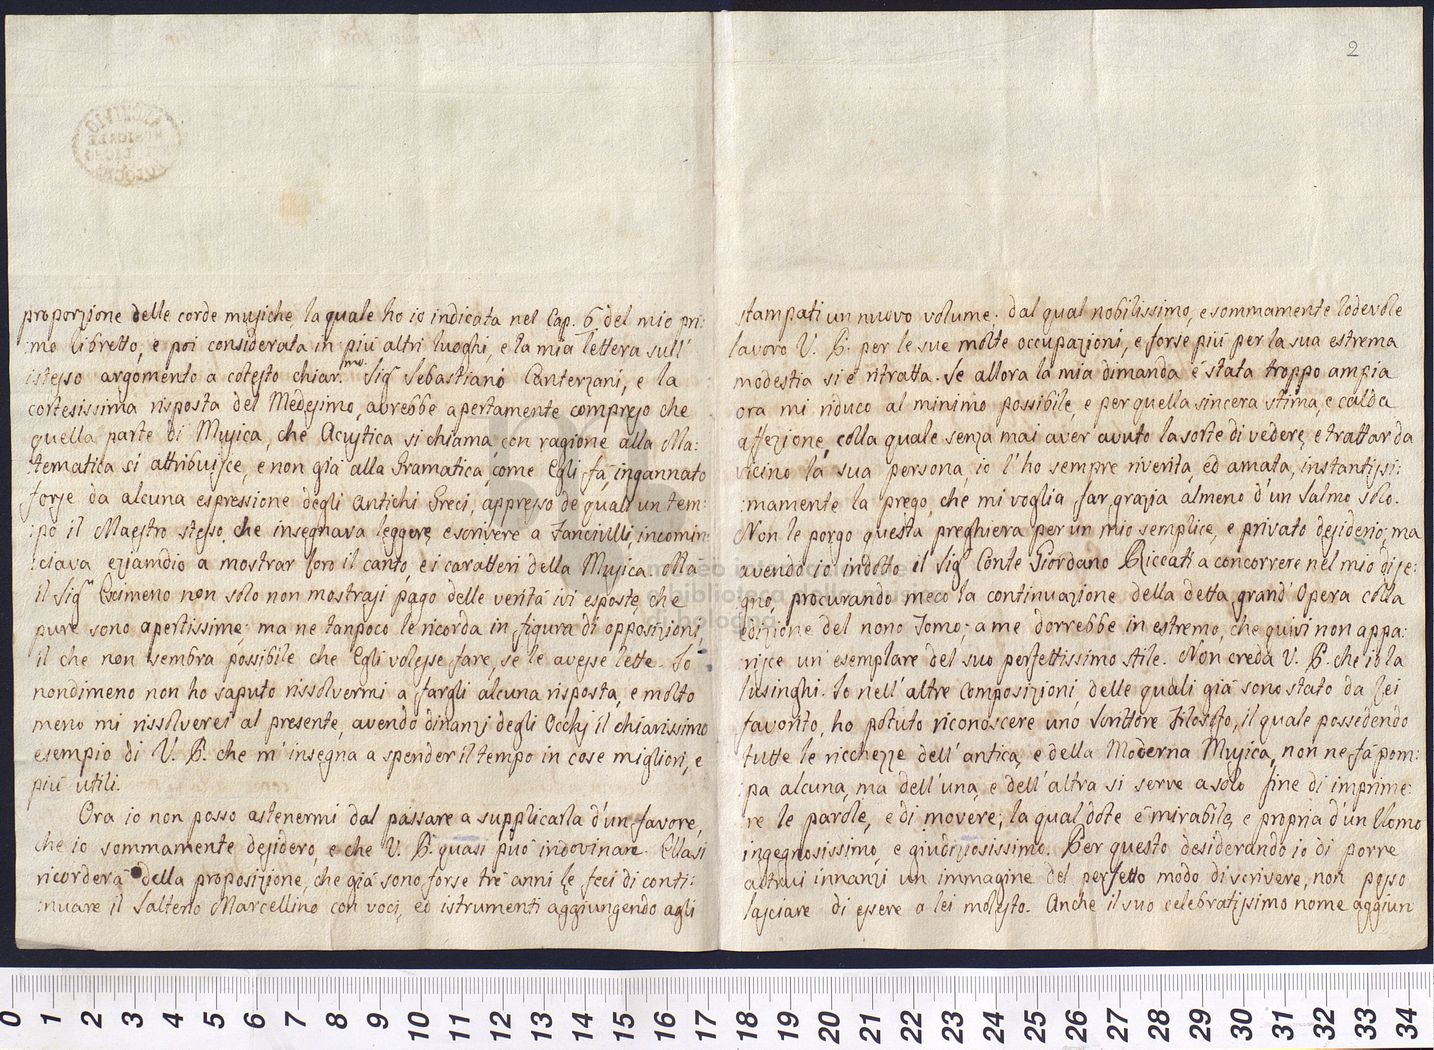 proporzione delle corde musiche, la quale ho io indicata nel Cap. 6 del mio pri:
:mo libretto, e poi considerata in più altri luoghi, e la mia lettera sull'
istesso argomento a cotesto chiar.mo Sig.r Sebastiano Canterzani, e la
cortesissima risposta del Medesimo, avrebbe apertamente compreso che
quella parte di Musica, che Acustica si chiama, con ragione alla Ma:
:tematica si attribuisce, e non già alla Gramatica, come Egli fà, ingannato
forse da alcuna espressione degli antichi Greci, appresso de' quali un tem:
:po il Maestro stesso, che insegnava leggere, e scrivere a Fanciulli, incomin:
:ciava eziamdio a mostrar loro il canto, e i caratteri della Musica. Ma
il Sig.r Eximeno non solo non mostrasi pago delle verità ivi esposte, che
pure sono apertissime; ma ne tanpoco le ricorda in figura di opposizioni,
il che non sembra possibile che Egli volesse fare, se le avesse lette. Io
nondimeno non ho saputo rissolvermi a fargli alcuna risposta, e molto
meno mi rissolverei al presente, avendo dinanzi degli Occhj il chiarissimo
esempio di V. P. che m'insegna a spender il tempo in cose migliori, e
più utili.
Ora io non posso astenermi dal passare a supplicarla d'un favore,
che io sommamente desidero, e che V. P. quasi può indovinare. Ella si
ricorderà della proposizione, che già sono forse trè anni le feci di conti:
:nuare il Salterio Marcellino con voci, ed istrumenti aggiungendo agli
2
stampati un nuovo volume. dal qual nobilissimo, e sommamente lodevole
lavoro V. P. per le sue molte occupazioni, e forse più per la sua estrema
modestia si è ritratta. Se allora la mia dimanda è stata troppo ampia
ora mi riduco al minimo possibile, e per quella sincera stima, e calda
affezione, colla quale senza mai aver avuto la sorte di vedere, e trattar da
vicino la sua persona, io l'ho sempre riverita, ed amata, instantissi:
:mamente la prego, che mi voglia far grazia almeno d'un Salmo solo.
Non le porgo questa preghiera per un mio semplice, e privato desiderio; ma
avendo io indotto il Sig.r Conte Giordano Riccati a concorrere nel mio dise:
gno, procurando meco la continuazione della detta grand'Opera colla
edizione del nono Tomo; a me dorrebbe in estremo, che quivi non appa:
:risce un'esemplare del suo perfettissimo stile. Non creda V. P. che io la
lusinghi. Io nell'altre composizioni, delle quali già sono stato da Lei
favorito, ho potuto riconoscere uno Scrittore Filosofo, il quale possedendo
tutte le ricchezze dell'antica, e della Moderna Musica, non ne fà pom:
:pa alcuna, ma dell'una, e dell'altra si serve a solo fine di imprime:
:re le parole, e di movere; la qual dote è mirabile, e propria d'un Uomo
ingegnosissimo, e giudiziosissimo. Per questo desiderando io di porre
altrui innanzi un immagine del perfetto modo di scrivere, non posso
lasciare di essere a lei molesto. Anche il suo celebratissimo nome aggiun